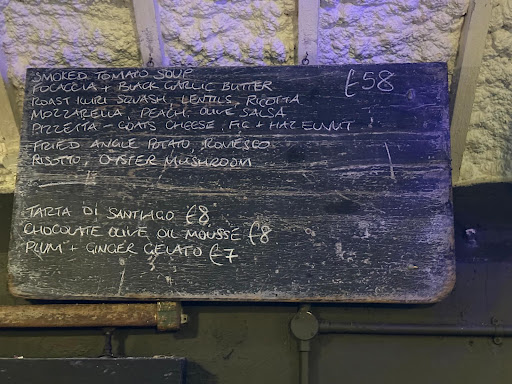 SMOKED TOMATO SOUP £58
FOCACCIA + BLACK GARLIC BUTTER
ROAST SQUASH, LENTILS, RICOTTA
MOZZARELLA, PEACH, OLIVE SALSA
PIZZETTA - GOATS CHEESE, FIG + HAZELNUT
FRIED ANGLE POTATO, ROMESCO
RISOTTO, OYSTER MUSHROOM
TARTA DI SANTIAGO £8
CHOCOLATE OLIVE OIL MOUSSE £8
PLUM + GINGER GELATO £7